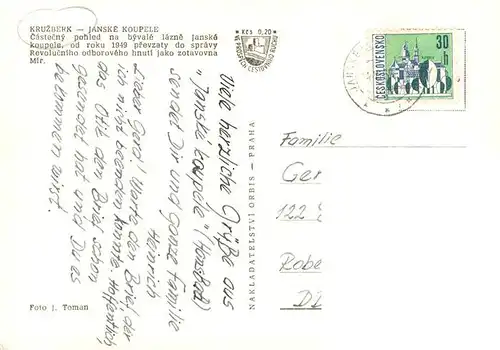 KRUŽBERK — JANSKÉ KOUPELE
Částečný pohled na bývalé lázně Janské
koupele, od roku 1949 převzaty do správy
Revolučního odborového hnutí jako zotavovna
Mír.
Kčs 0,20
VE PROSPĚCH CESTOVNÍHO RUCHU
30 h
ČESKOSLOVENSKO
Viele herzliche Grüße aus
"Janské koupele" (Hansbad)
sendet Dir und ganze Familie
Heinrich
Lieber Gerd! Warte den Brief, der
ich nicht beenden konnte. Hoffentlich
das Otik den Brief schon
gesendet hat und Du es
bekommen wirst.
NAKLADATELSTVÍ ORBIS — PRAHA
Familie
Ger
122
Robe
Foto J. Toman